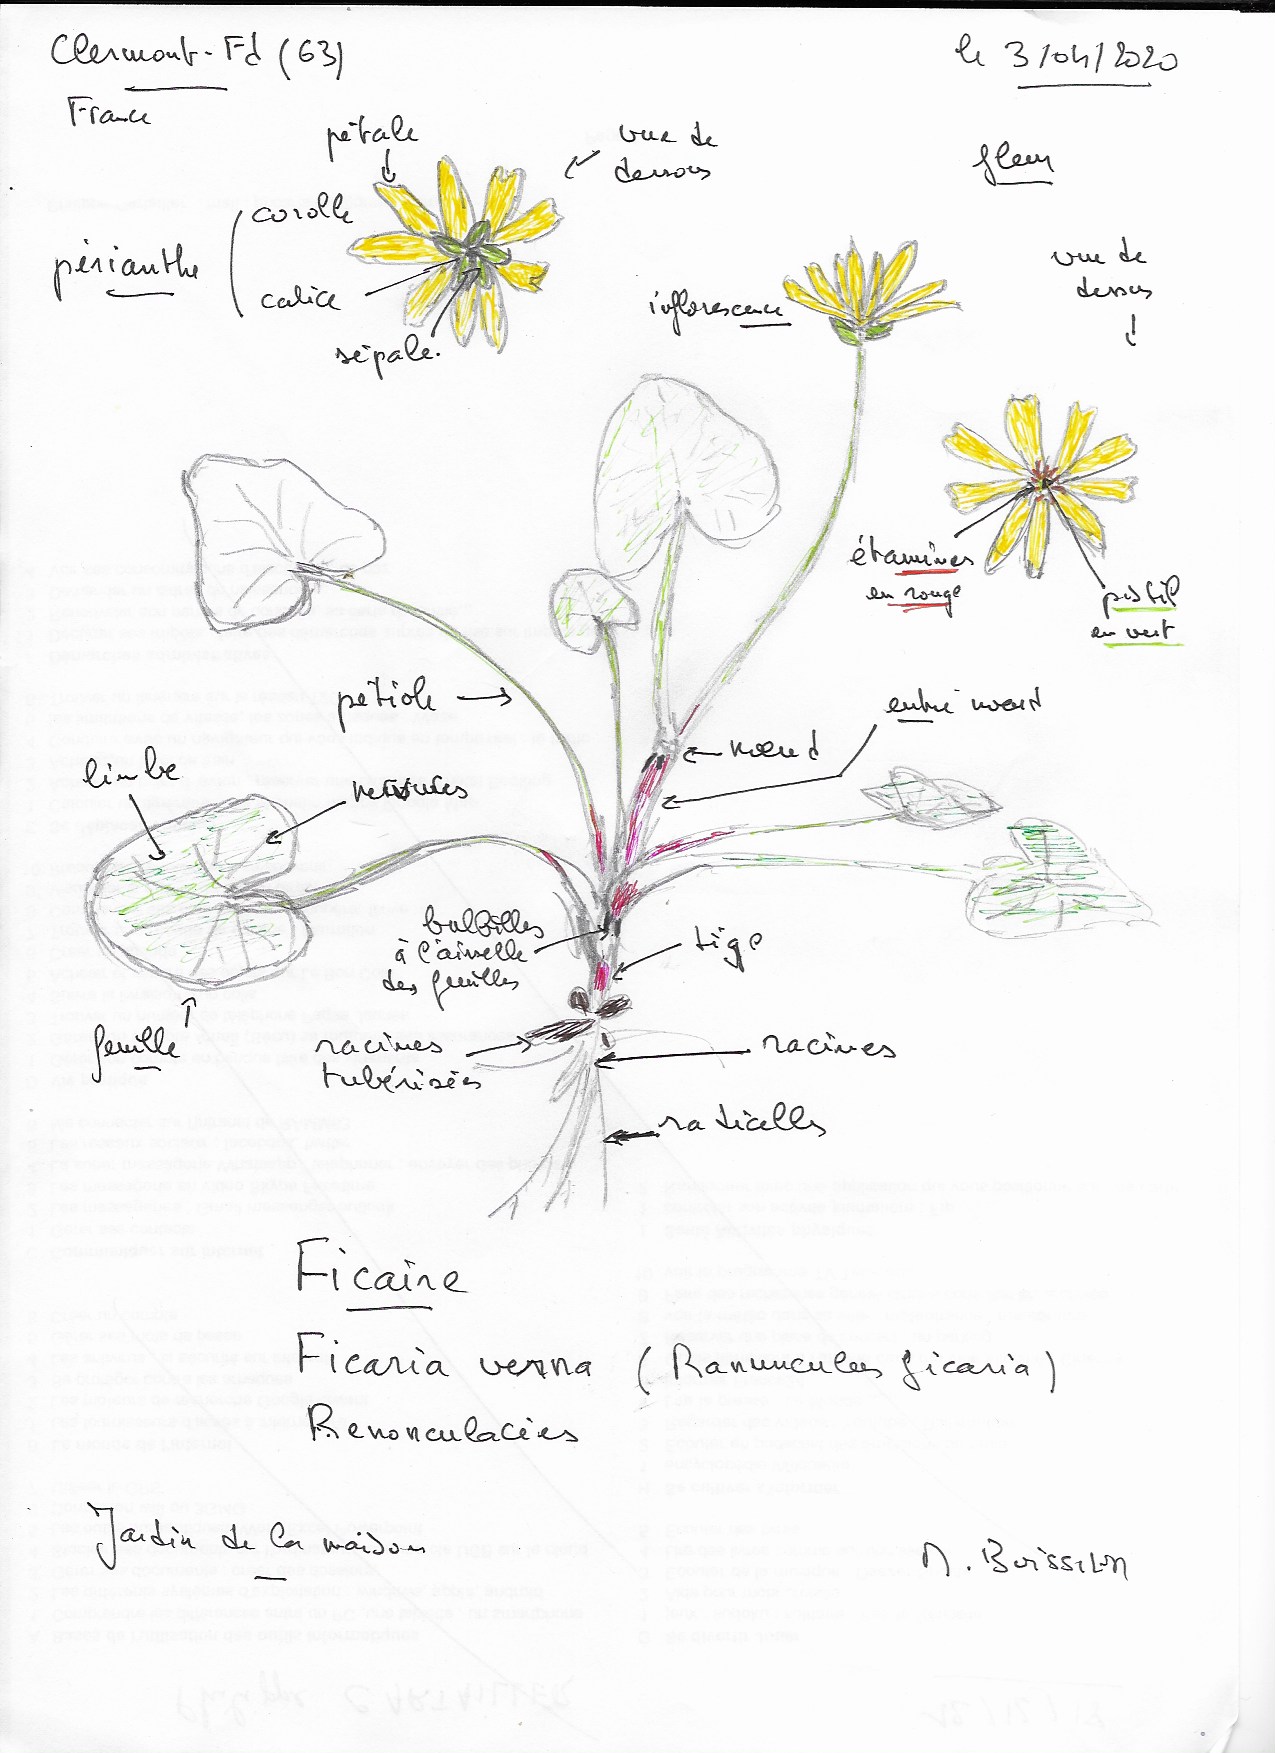 Clermont-Fd (63)
France
le 3/04/2020
pétale
vue de
dessous
fleur
corolle
périanthe
calice
sépale.
inflorescence
vue de
dessus
étamines
en rouge
pistil
en vert
pétiole
entre noeud
noeud
limbe
nervures
bulbilles
à l'aisselle
des feuilles
tige
feuille
racines
tubérisées
racines
radicelles
Ficaire
Ficaria verna (Ranunculus ficaria)
Renonculacées
Jardin de la maison
M. Boissilon